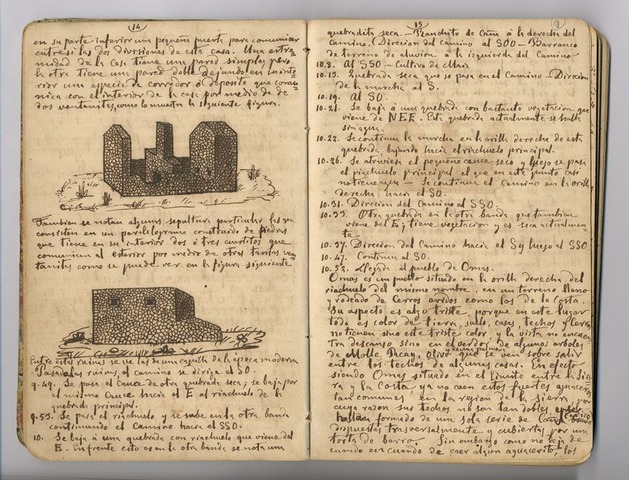 14
en su parte inferior un pequeña puerta para comunicar
entre sí las dos divisiones de esta casa. Una extre
midad de la casa tiene un pared simple, pero
la otra tiene un pared doble dejando en su inte
rior un especie de corredor ó depósito que comu=
nica con el interior de la casa por medio de de
dos ventanitas, como lo muestra la siguiente figura.
Tambien se notan algunas sepulturas particulares
consisten en un paralelogramo construido de piedras
que tiene en su interior dos ó tres cuartitos que
comunican al exterior por medio de otras tantas ven
tanitas como se puede ver en la figura siguiente
Entre estas ruinas se ve las de una capilla de la época moderna
Pasadas las ruinas, el camino se dirige al SO.
9.49. Se pasa el cauce de otra quebrada seca; se baja por
el mismo cauce hácia el E al riachuelo de la
quebrada principal.
9.53. Se pasa el riachuelo y se sube en la otra banda
continuando el camino hácia el SSO.
10. Se baja á una quebrada con riachuelo que viene del
E. Enfrente esto es en la otra banda se nota una
15
quebradita seca. — Ranchito de Caña á la derecha del
Camino. Direccion del camino al SOO — Barranco
de terreno de aluvion á la izquierda del Camino
10.8. Al SSO — Cultivo de Maiz
10.13. Quebrada seca que se pasa en el Camino — Direccion
de la marcha al S.
10.19. Al SO.
10.21. Se baja á una quebrada con bastante vegetacion que
viene de NEE. Esta quebrada actualmente se halla
sin agua.
10.22. Se continua la marcha en la orilla derecha de esta
quebrada, bajando hácia el riachuelo principal.
10.26. Se atraviesa el pequeño cauce seco y luego se pasa
el riachuelo principal el que en este punto casi
no tiene agua — Se continua el camino en la orilla
derecha hácia el SO.
10.31. Direccion del camino al SSO.
10.33. Otra quebrada en la otra banda que tambien
viene del E; tiene vegetacion y es seca actualmen
te
10.37. Direccion del Camino hácia el S y luego al SSO
10.47. Continua al SO.
10.52. Llegada al pueblo de Omas.
Omas es un pueblo situado en la orilla derecha del
riachuelo del mismo nombre, en un terreno llano
y rodeado de Cerros aridos como los de la Costa.
Su aspecto es algo triste, porque en este lugar
todo es color de tierra, suelo, casas, techos y Cerros
no tienen sino este triste color y la vista no encuen
tra descanso sino en el verdor de algunos arboles
de Molle, Pacay, olivo que se ven sobre salir
entre los techos de algunas casas. En efecto
siendo Omas situado en el punto entre la Sier
ra y la Costa, ya no caen estos fuertes aguaceros
tan comunes en la region de la sierra, por
cuya razon sus techos no son tan dobles
hallan formados de una sola serie de Cañas
dispuestas trasversalmente y cubiertas por una
torta de barro. Sin embargo como no deja de
cuando en cuando de caer algun aguacerito, los